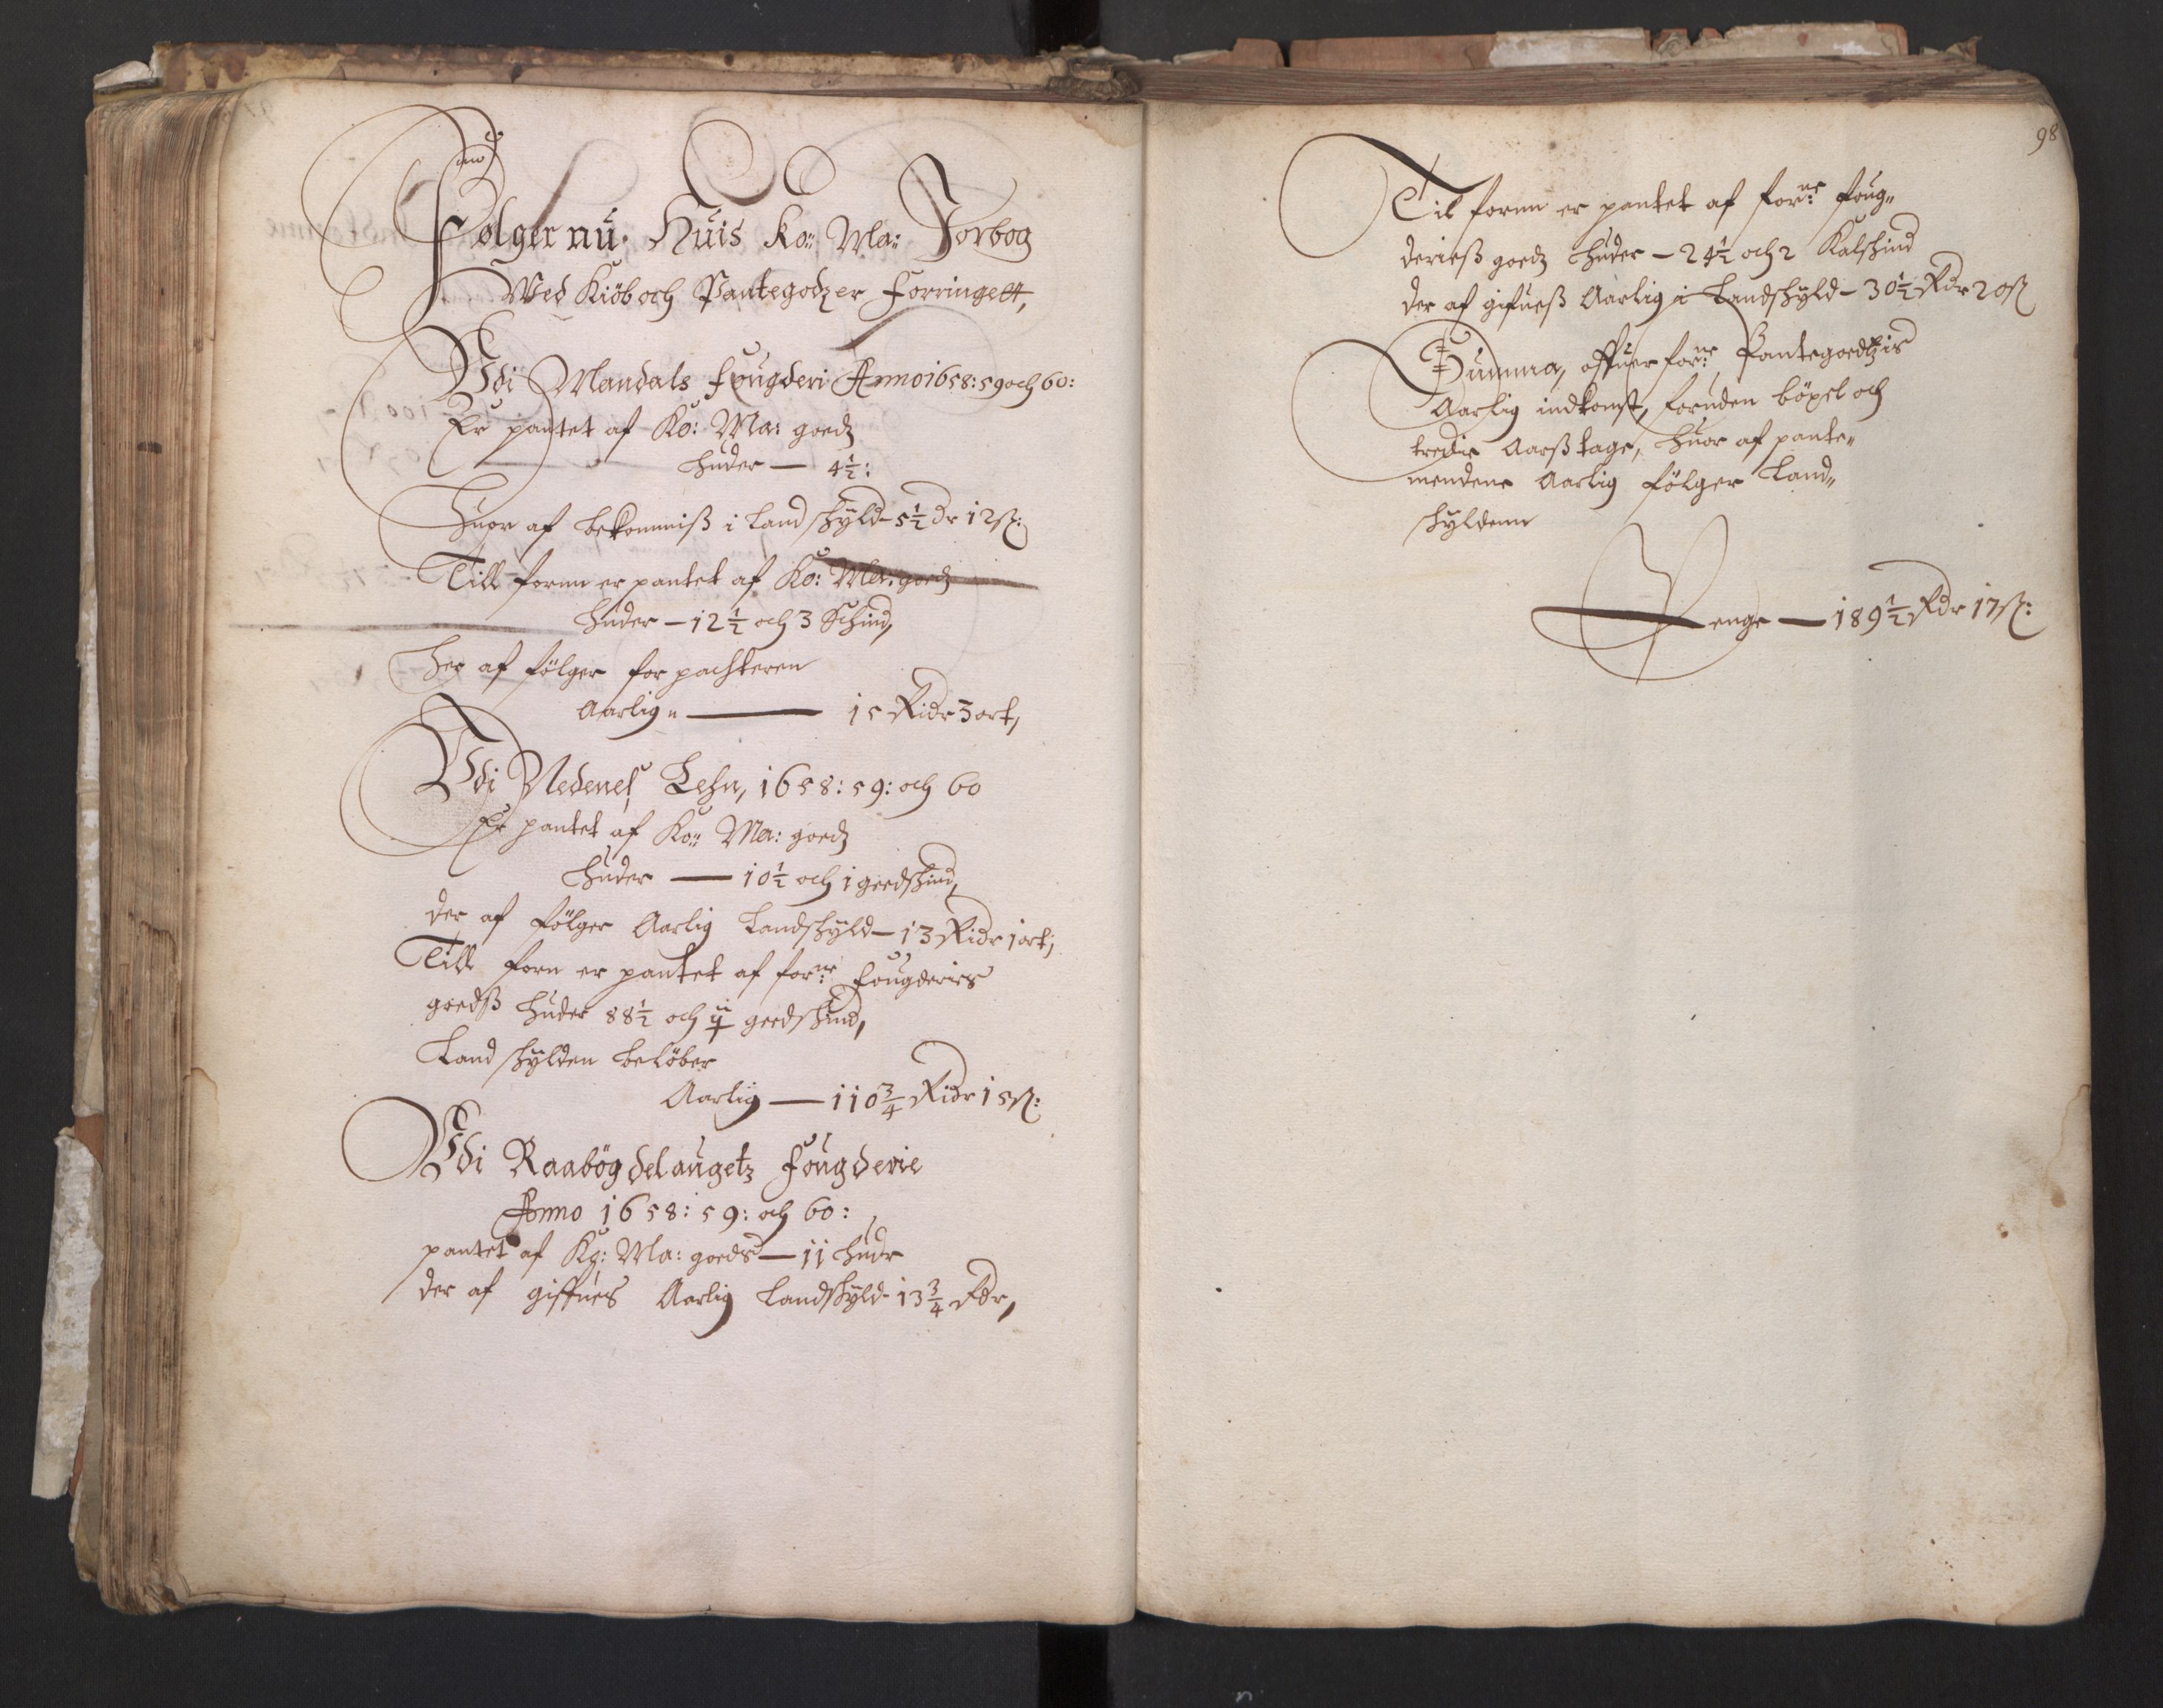 Fölger nu. Huis Ko: Ma: Jorbog
Wed Kiöb och Pantegodz er Forringett,
Udi Mandals Fougderi Anno 1658: 59 och 60:
Er pantet af Ko: Ma: goedz
huder — 4½:
Huor af bekommiß i Landskyld - 5½ Dr 12 ß:
Till fornn er pantet af Ko: Ma: goedz
huder — 12½ och 3 Schind,
her af fölger for pachteren
Aarlig — 15 Ridr 3 ort,
Udi Nedenes Lehn, 1658: 59: och 60
Er pantet af Ko: Ma: goedz
huder — 10½ och 1 geedskind,
der af fölger Aarlig Landskyld — 13 Ridr 1 ort,
Till forn er pantet af forne: Fougderies
goedß huder 88½ och geedskind,
Landskylden belöber
Aarlig — 110¾ Ridr 15 ß:
Udi Raabögdelaugetz Fougderie
Anno 1658: 59: och 60:
pantet af Kg: Ma: goeds — 11 hudr
der af giffues Aarlig Landskyld - 13¾ Rdr,
98
Til fornn er pantet af forne: foug„
derieß goedz huder — 24½ och 2 Kalfskind
der af gifueß Aarlig i Landskyld — 30½ Rdr 20 ß
Summa, offuer forne: Pantegoedtzis
Aarlig indkomst, foruden böxel och
tredie Aarß tage, huor af pante„
mendene Aarlig fölger Land„
skyldenn
Penge — 189½ Rdr 17 ß: